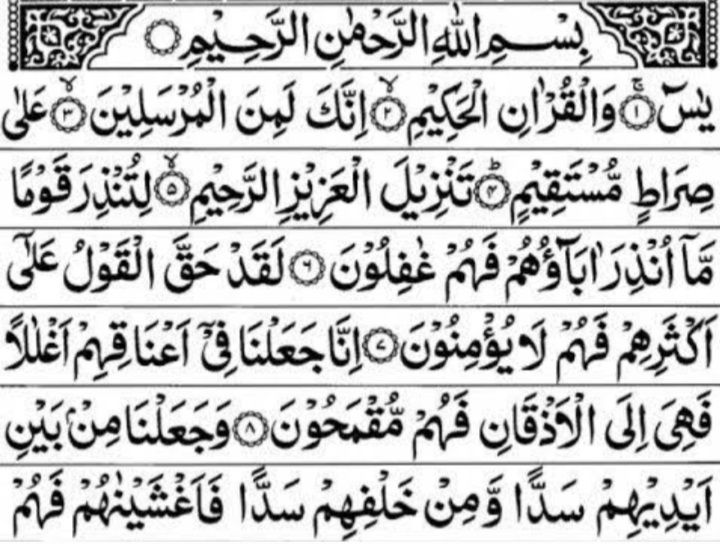 بِسْمِ اللّٰهِ الرَّحْمٰنِ الرَّحِيْمِ
يٰسٓ ۚ‏﴿۱﴾ وَالْقُرْاٰنِ الْحَكِيْمِ ۙ‏﴿۲﴾ اِنَّكَ لَمِنَ الْمُرْسَلِيْنَ ۙ‏﴿۳﴾ عَلٰى
صِرَاطٍ مُّسْتَقِيْمٍ ؕ‏﴿۴﴾ تَنْزِيْلَ الْعَزِيْزِ الرَّحِيْمِ ۙ‏﴿۵﴾ لِتُنْذِرَ قَوْمًا
مَّاۤ اُنْذِرَ اٰبَآؤُهُمْ فَهُمْ غٰفِلُوْنَ ﴿۶﴾ لَقَدْ حَقَّ الْقَوْلُ عَلٰٓى
اَكْثَرِهِمْ فَهُمْ لَا يُؤْمِنُوْنَ ﴿۷﴾ اِنَّا جَعَلْنَا فِىْۤ اَعْنَاقِهِمْ اَغْلٰلًا
فَهِىَ اِلَى الْاَذْقَانِ فَهُمْ مُّقْمَحُوْنَ ﴿۸﴾ وَجَعَلْنَا مِنْۢ بَيْنِ
اَيْدِيْهِمْ سَدًّا وَّمِنْ خَلْفِهِمْ سَدًّا فَاَغْشَيْنٰهُمْ فَهُمْ